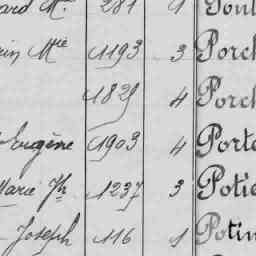 ard M. 281 1 Poul
rin Mie 1193 3 Porch
1829 4 Porch
Eugène 1903 4 Porte
Marie Jh 1237 3 Potie
Joseph 116 1 Potin